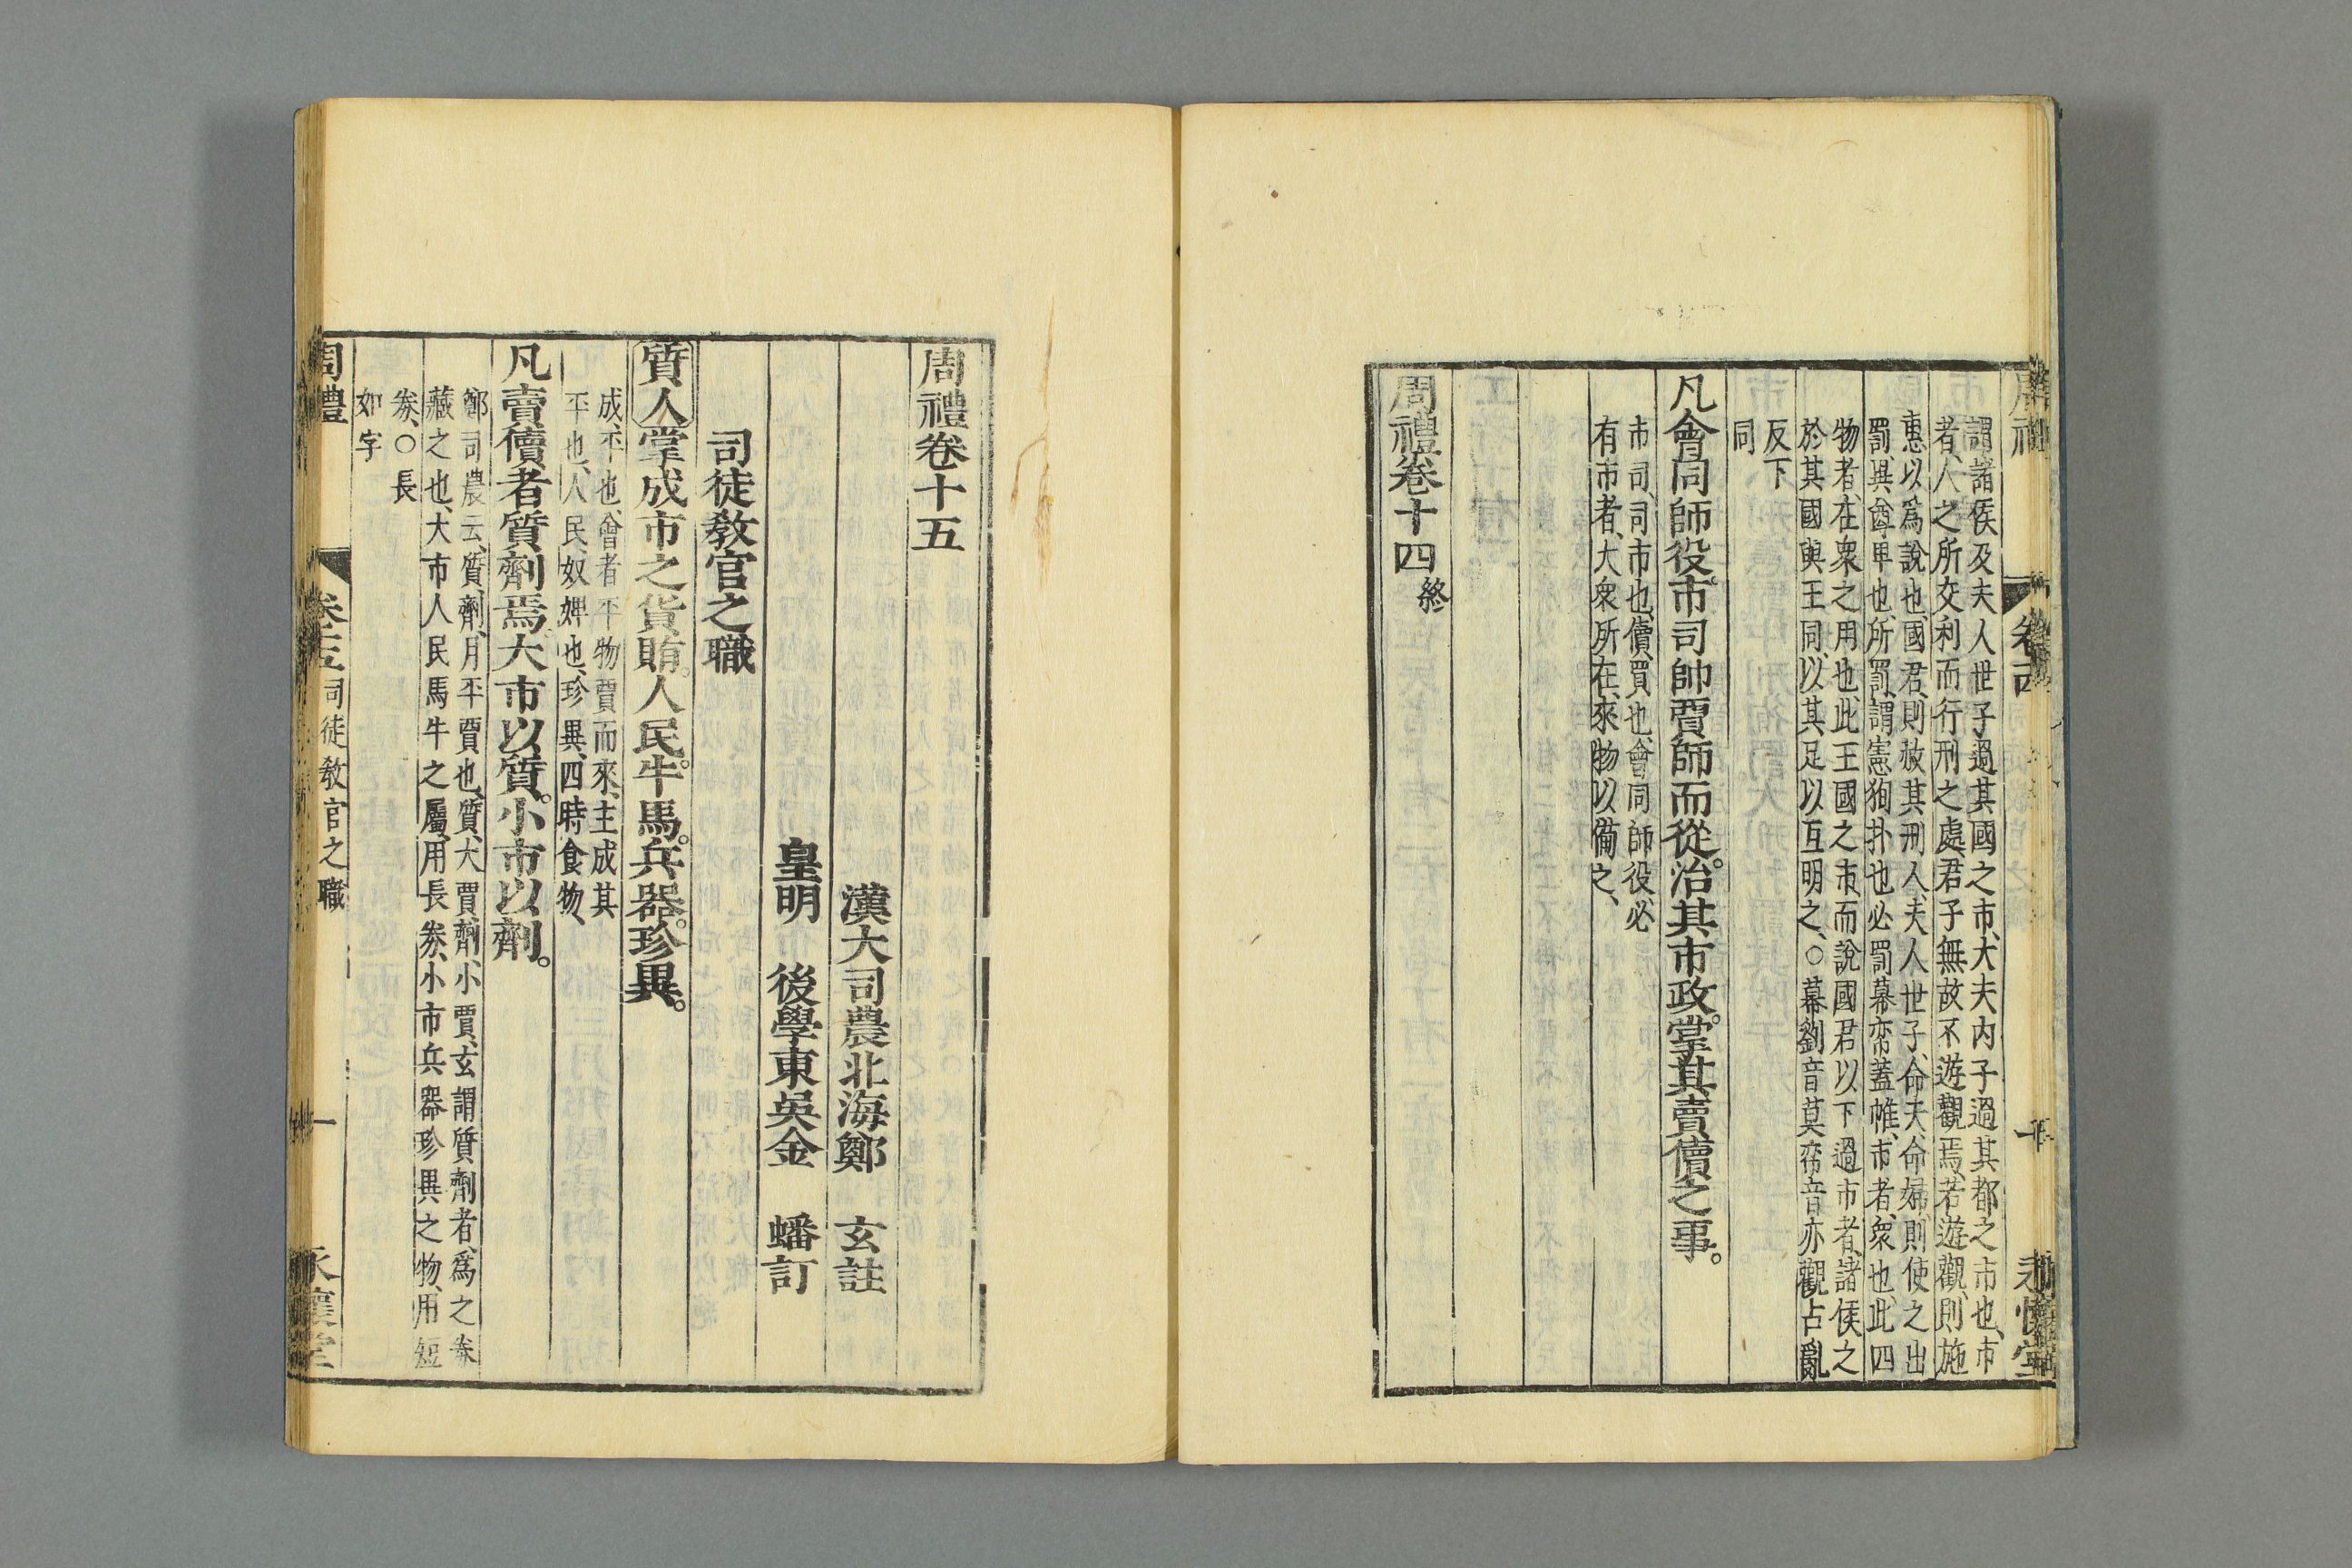 謂諸侯及夫人世子過其國之市、大夫内子過其都之市也、市
者、人之所交利而行刑之處、君子無故不遊觀焉、若遊觀、則施
惠以爲說也、國君則赦其刑人、夫人世子、命夫、命婦、則使之出
罰、異尊卑也、所罰、謂憲徇扑也、必罰幕帟蓋帷、市者、衆也、此四
物者、在衆之用也、此王國之市、而說國君以下過市者、諸侯之
於其國與王同、以其足以互明之、○幕劉音莫帟音亦觀占亂
反下
同
凡會同師役。市司帥賈師而從。治其市政。掌其賣儥之事。
市司、司市也、儥、買也、會同師役、必
有市者、大衆所在、來物以備之、
周禮卷十四 終
周禮卷十五
漢大司農北海鄭 玄註
皇明 後學東吳金 蟠訂
司徒敎官之職
質人掌成市之貨賄。人民。牛馬。兵器。珍異。
成、平也、會者平物賈而來、主成其
平也、人民、奴婢也、珍異、四時食物、
凡賣儥者質劑焉。大市以質。小市以劑。
鄭司農云、質劑、月平賈也、質、大賈、劑、小賈、玄謂質劑者、爲之券
藏之也、大市人民馬牛之屬、用長券、小市兵器珍異之物、用短
券、○長
如字
周禮 卷十五 司徒敎官之職 一 永懷堂